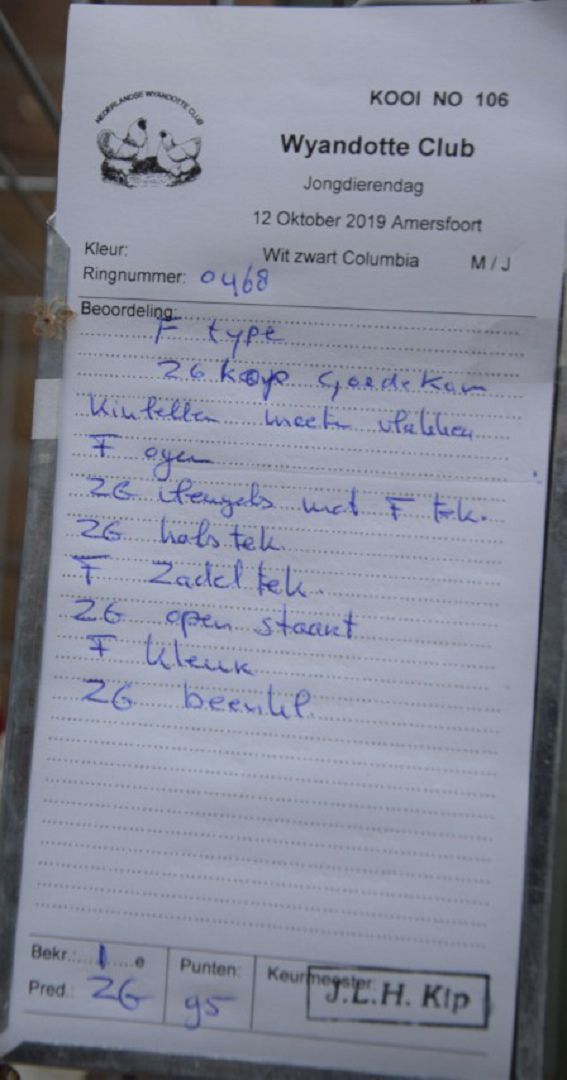 NEDERLANDSE WYANDOTTE CLUB
KOOI NO 106
Wyandotte Club
Jongdierendag
12 Oktober 2019 Amersfoort
Kleur: Wit zwart Columbia M / J
Ringnummer: 0468
Beoordeling:
F type
ZG kop goede kam
Kinlellen moeten vlakker
F ogen
ZG vleugels met F tek.
ZG hals tek.
F Zadel tek.
ZG open staart
F kleur
ZG beenkl.
Bekr.: 1 e
Pred.: ZG
Punten:
95
Keurmeester:
J.L.H. Kip